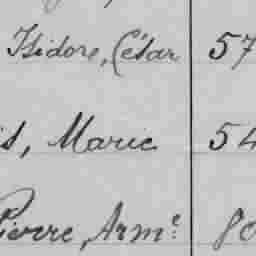 Isidore, César 57
Marie 54
Pierre, Arm.e 80